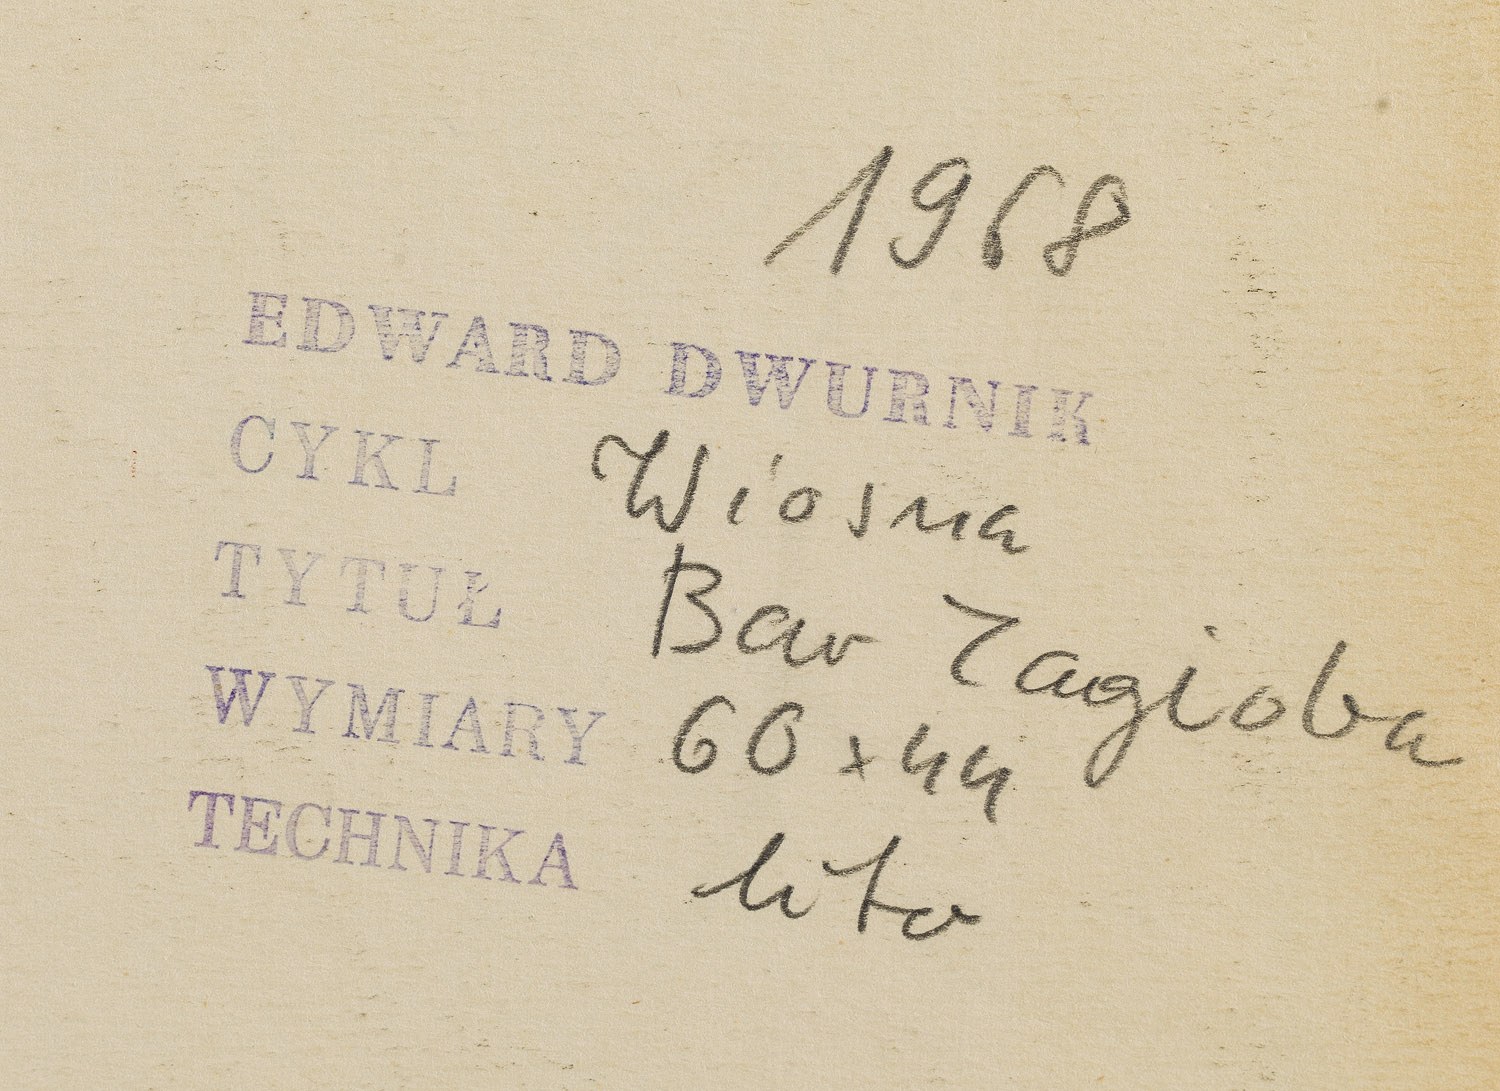 1968
EDWARD DWURNIK
CYKL Wiosna
TYTUŁ Bar Zagłoba
WYMIARY 60 x 44
TECHNIKA lito